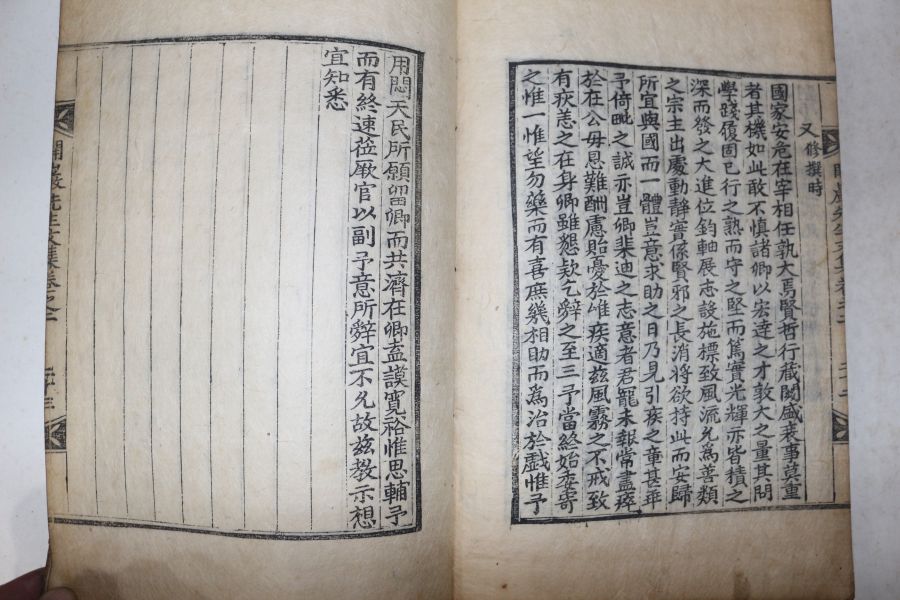 又修撰時
國家安危在宰相任孰大焉賢哲行藏關盛衰事莫重
者其機如此敢不慎諸卿以宏達之才敦大之量其問
學踐履固已行之熟而守之堅而篤實光輝亦皆積之
深而發之大進位鈞軸展志設施標致風流允爲善類
之宗主出處動靜實係賢邪之長消將欲持此而安歸
所宜與國而一體豈意求助之日乃見引疾之章甚乖
予倚毗之誠示豈卿棐迪之志意者君寵未報常盡瘁
於在公母恩難酬慮貽憂於唯疾適玆風霧之不戒致
有疾恙之在身卿雖懇欵乞辭之至三予當終始
之惟一惟望勿藥而有喜庶幾相助而爲治於戱惟予
用悶天民所願留卿而共濟在卿盍謨寬裕惟思輔予
而有終速莅厥官以副予意所辭宜不允故玆教示想
宜知悉
開巖先生文集卷之二